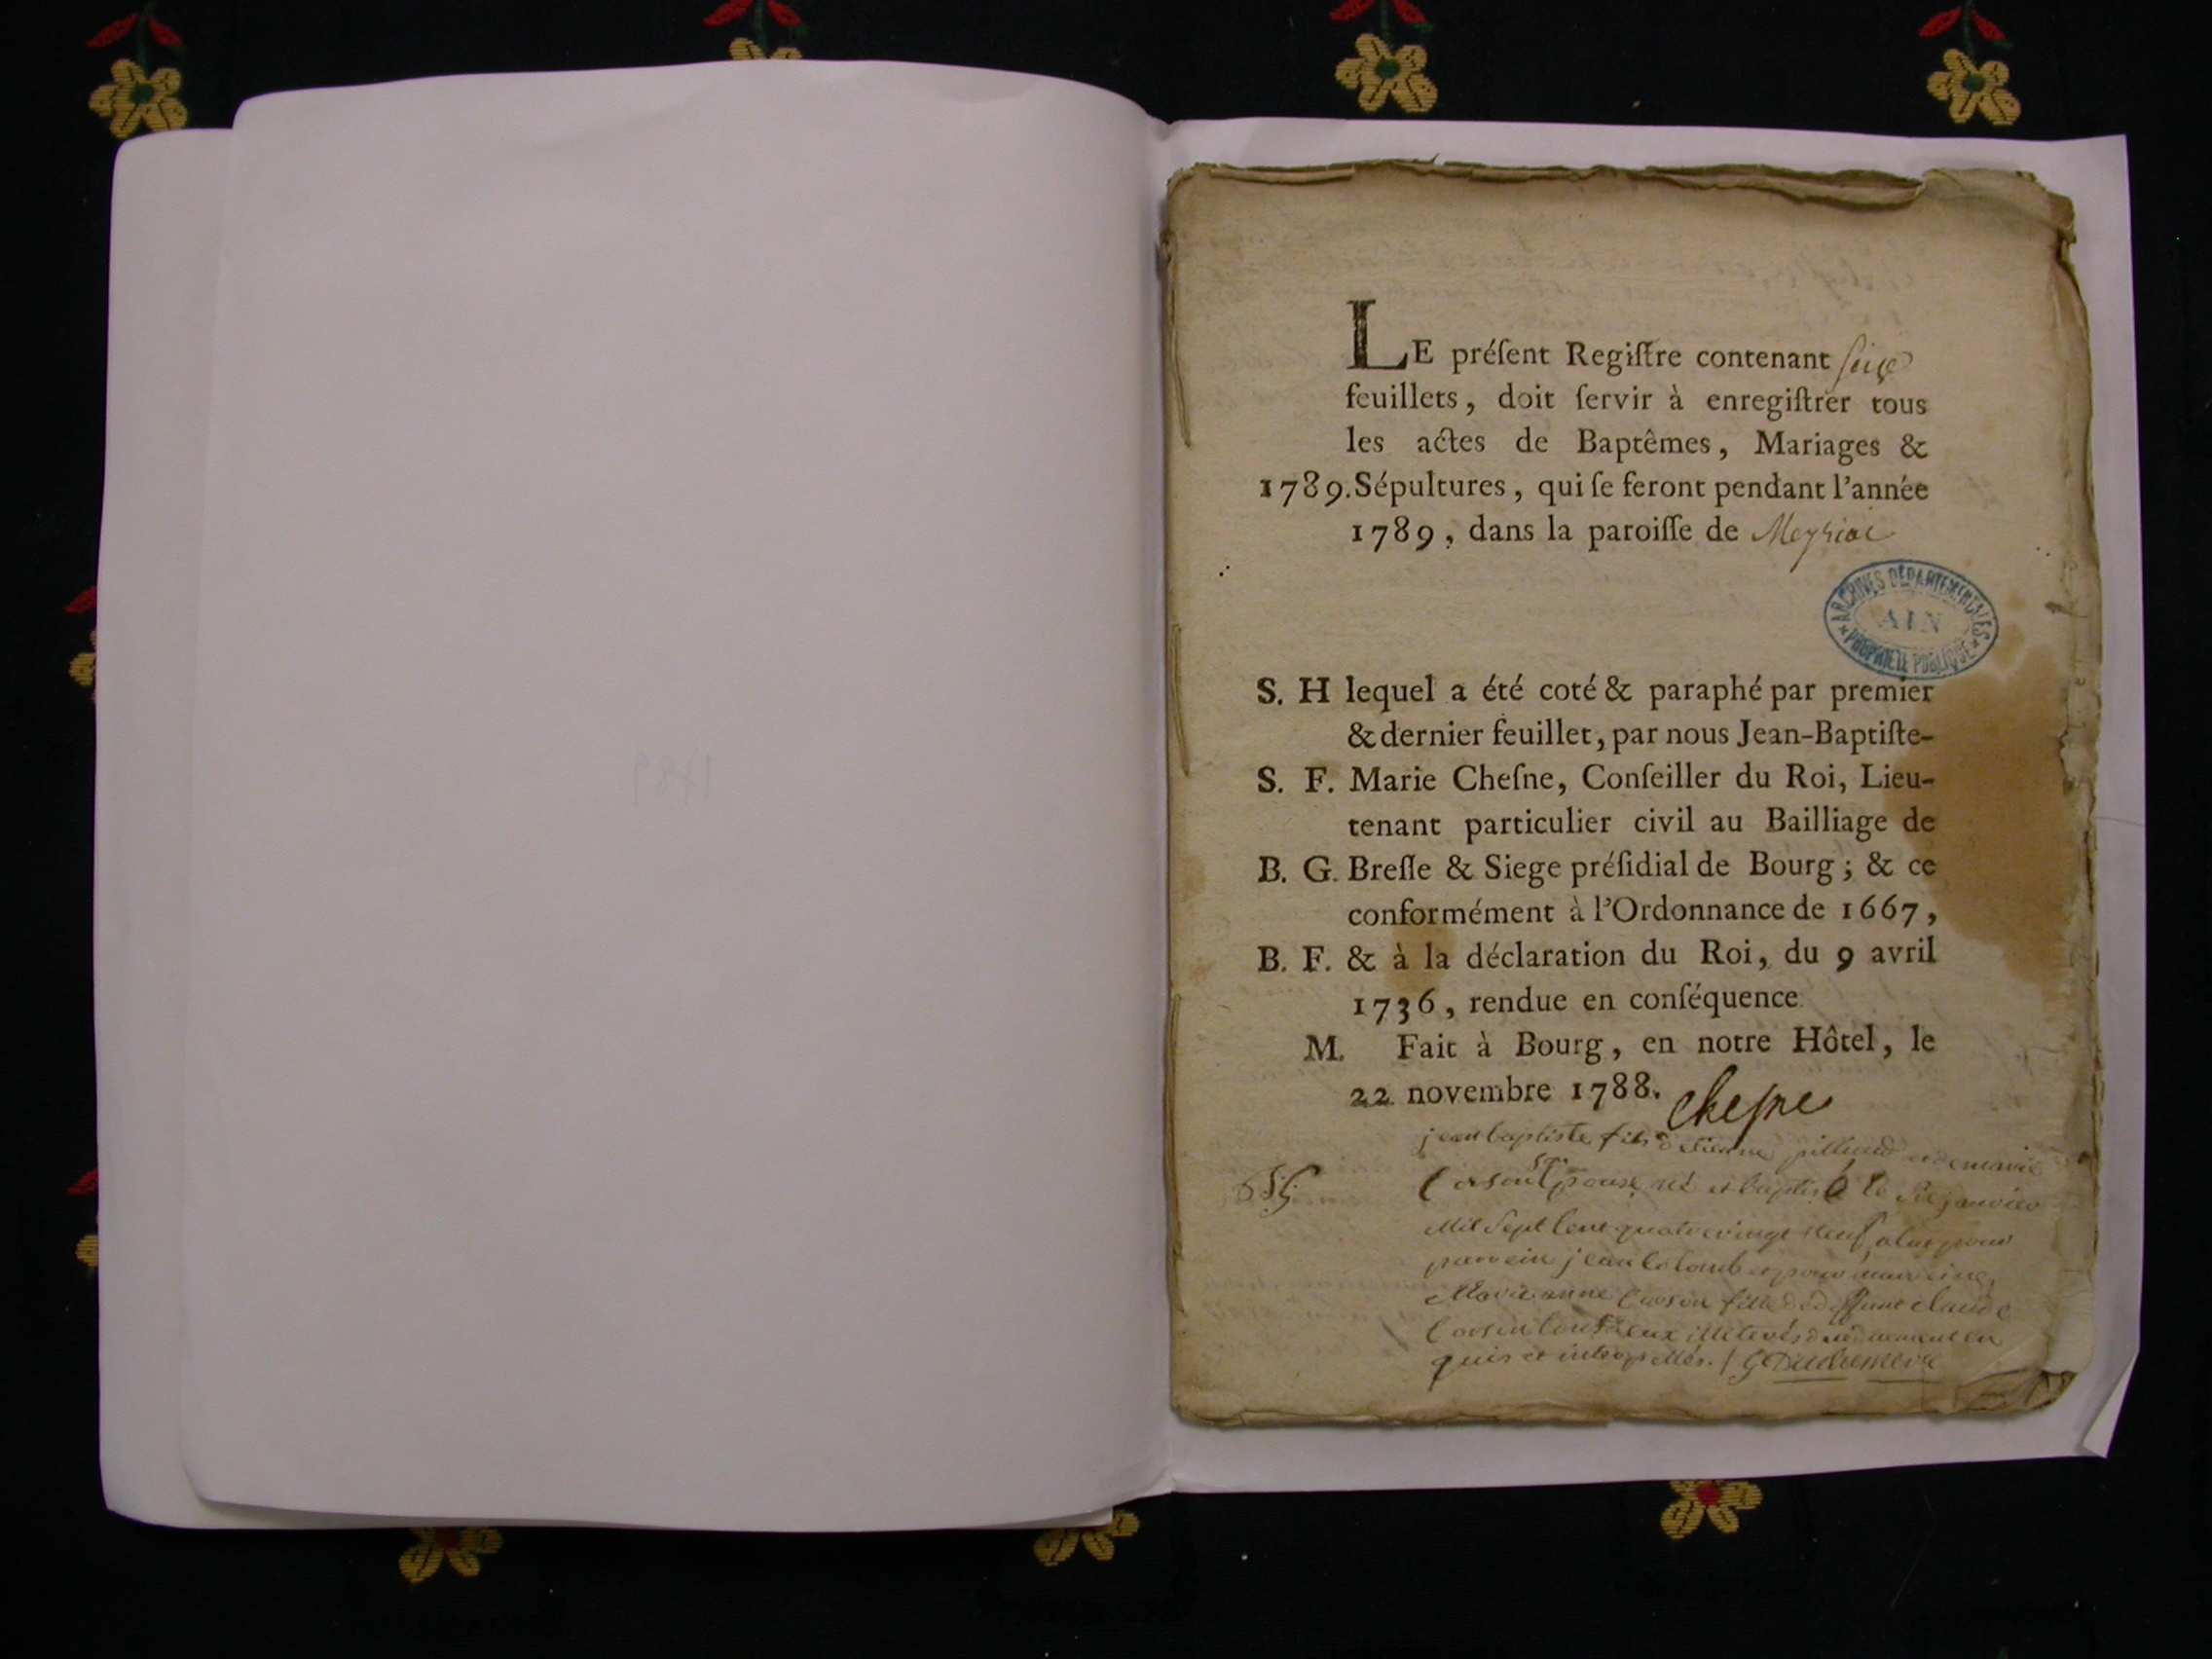 LE préſent Regiſtre contenant seize
feuillets, doit ſervir à enregiſtrer tous
les actes de Baptêmes, Mariages &
1789. Sépultures, qui ſe feront pendant l'année
1789, dans la paroiſſe de Meyriat
ARCHIVES DÉPARTEMENTALES
AIN
PROPRIÉTÉ PUBLIQUE
S. H lequel a été coté & paraphé par premier
& dernier feuillet, par nous Jean-Baptiſte-
S. F. Marie Cheſne, Conſeiller du Roi, Lieu-
tenant particulier civil au Bailliage de
B. G. Breſſe & Siege préſidial de Bourg; & ce
conformément à l'Ordonnance de 1667,
B. F. & à la déclaration du Roi, du 9 avril
1736, rendue en conſéquence.
M. Fait à Bourg, en notre Hôtel, le
22 novembre 1788. Chesne
jean baptiste fils d'etienne et de marie
né et baptisé le janvier
Mil Sept Cent quatre vingt Neuf a eu pour
parrein jean Colomb et pour marreine
Marie anne fille de deffunt claude
tous deux illiterés en
quis et interpellés.
1789